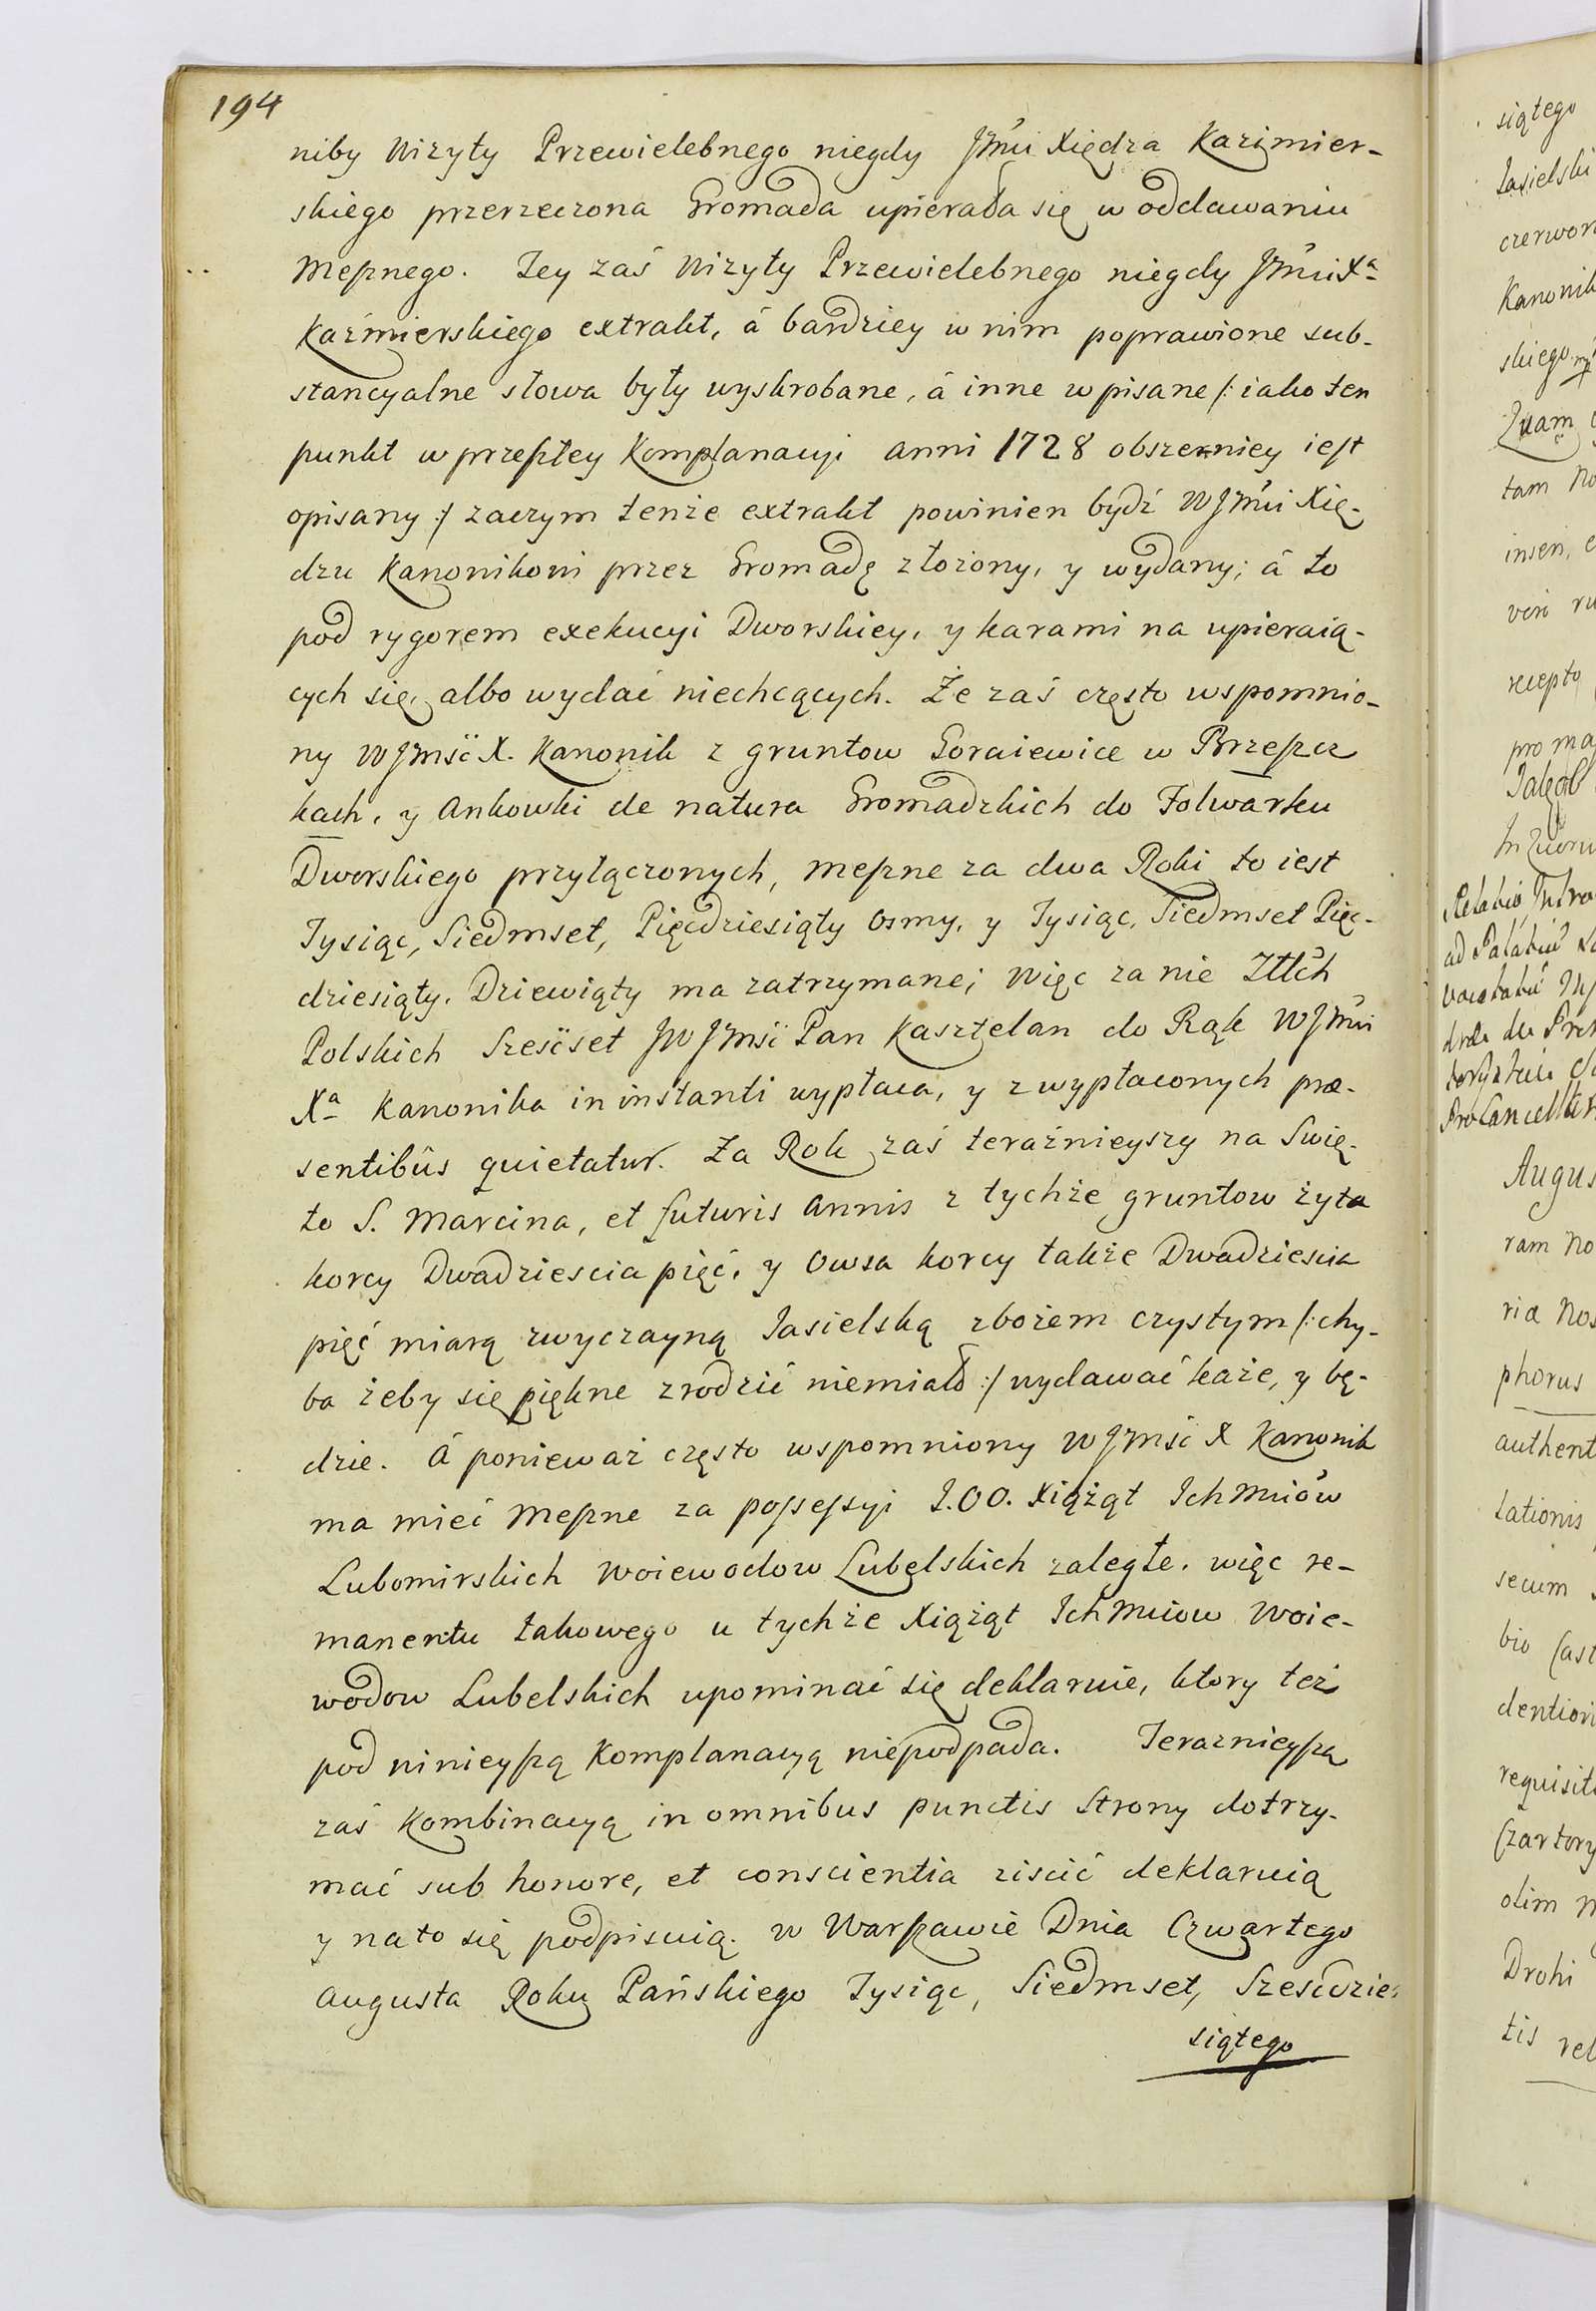 194
niby Wizyty Przewielebnego niegdy Jmći Xiędza Kazimier-
skiego przerzeczona Gromada upierała się w oddawaniu
Mesznego. Jey zaś Wizyty Przewielebnego niegdy Jmći Xa
Kaźmierskiego extrakt, á bardziey w nim poprawione sub-
stancyalne słowa były wyskrobane, á inne wpisane /: iako ten
punkt w przeszłey Komplanacyi anni 1728 obszerniey iest
opisany :/ zaczym tenże extrakt powinien bydź WJmći Xię-
dzu Kanonikowi przez Gromadę złożony, y wydany; á to
pod rygorem exekucyi Dworskiey, y karami na upieraią-
cych się, albo wydać niechcących. Że zaś często wspomnio-
ny WJmść X. Kanonik z gruntow Goraiewice w Brzeszcz
kach, y Ankowki de natura Gromadzkich do Folwarku
Dworskiego przyłączonych, meszne za dwa Roki to iest
Tysiąc, Siedmset, Pięcdziesiąty osmy, y Tysiąc, Siedmset Pięc-
dziesiąty Dziewiąty ma zatrzymane; Więc za nie Złtch
Polskich Sześcset JWJmść Pan Kasztelan do Rąk WJmći
Xa Kanonika in instanti wypłaca, y z wypłaconych præ-
sentibus quietatur. Za Rok zaś teraźnieyszy na Swię-
to S. Marcina, et futuris annis z tychże gruntow żyta
korcy Dwadziescia pięć, y Owsa korcy także Dwadziescia
pięć miarą zwyczayną Jasielską zbożem czystym /: chy-
ba żeby się piękne zrodzić niemiało :/ wydawać każe, y bę-
dzie. Á ponieważ często wspomniony WJmść X Kanonik
ma mieć Meszne za possessyi J.OO. Xiążąt Ichmciów
Lubomirskich Woiewodow Lubelskich zaległe, więc re-
manentu takowego u tychże Xiążąt Ichmciow Woie-
wodow Lubelskich upominać się deklaruie, ktory też
pod ninieyszą Komplanacyą niepodpada. Terazniejszą
zaś Kombinacyą in omnibus punctis Strony dotrzy-
mać sub honore, et conscientia ziścić deklaruią
y na to się podpisuią. w Warszawie Dnia Czwartego
Augusta Roku Pańskiego Tysiąc, Siedmset, Sześcdzie-
siątego
siątego
Jasielski
Kanonik
skiego
Quam
tam
insen,
veri
recepto
pro
Jakob
Relatio
ad
Augus
ram
riæ
phorus
authent
tationis
secum
bio
dentiori
requisit
Czartory
olim
Drohi
tis